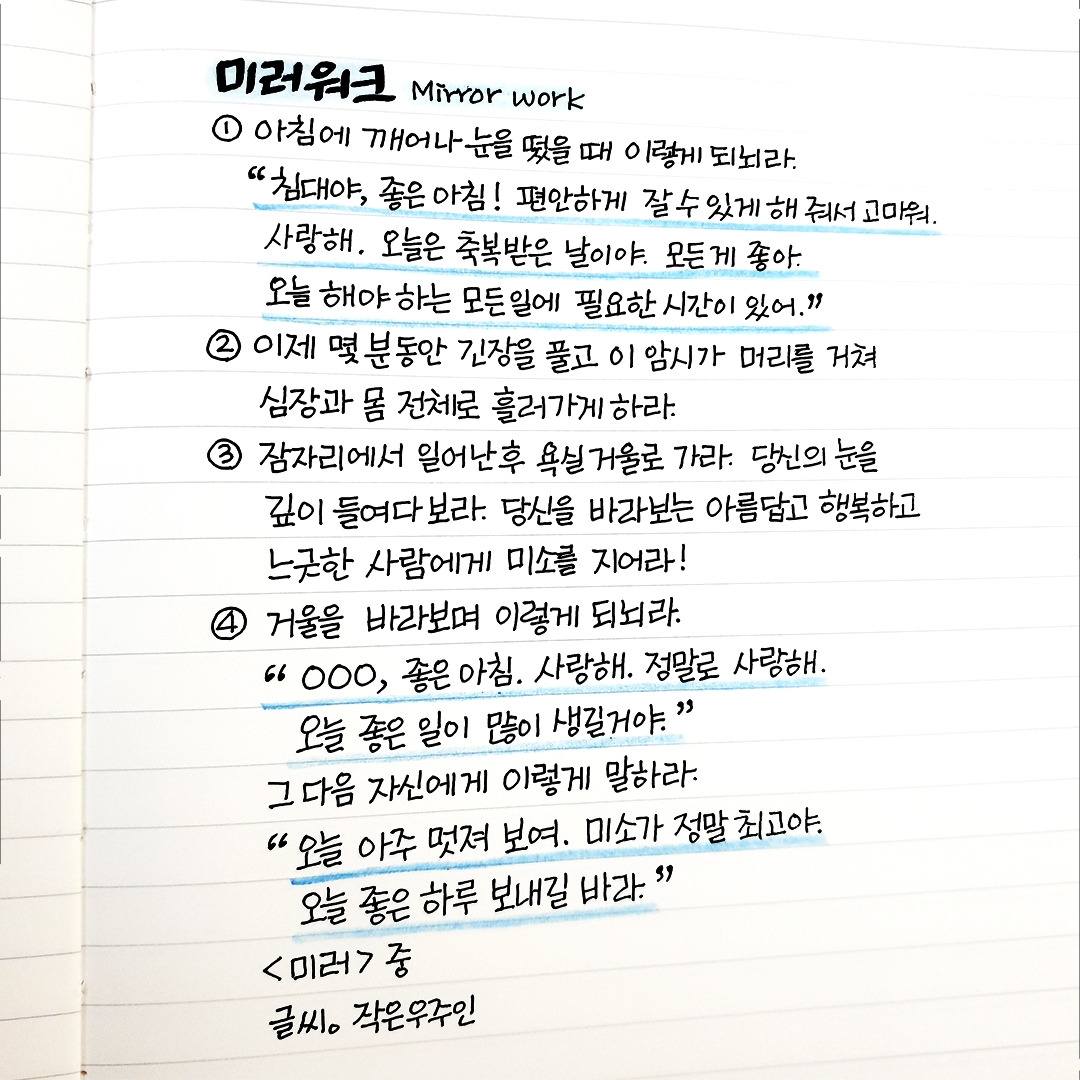 미러워크 Mirror work
① 아침에 깨어나 눈을 떴을 때 이렇게 되뇌라.
“침대야, 좋은 아침! 편안하게 잘 수 있게 해 줘서 고마워.
사랑해. 오늘은 축복받은 날이야. 모든게 좋아.
오늘 해야 하는 모든 일에 필요한 시간이 있어.”
② 이제 몇 분동안 긴장을 풀고 이 암시가 머리를 거쳐
심장과 몸 전체로 흘러가게 하라.
③ 잠자리에서 일어난 후 욕실 거울로 가라. 당신의 눈을
깊이 들여다 보라. 당신을 바라보는 아름답고 행복하고
느긋한 사람에게 미소를 지어라!
④ 거울을 바라보며 이렇게 되뇌라.
“OOO, 좋은 아침. 사랑해. 정말로 사랑해.
오늘 좋은 일이 많이 생길거야.”
그 다음 자신에게 이렇게 말하라.
“오늘 아주 멋져 보여. 미소가 정말 최고야.
오늘 좋은 하루 보내길 바라.”
<미러> 중
글씨。작은우주인